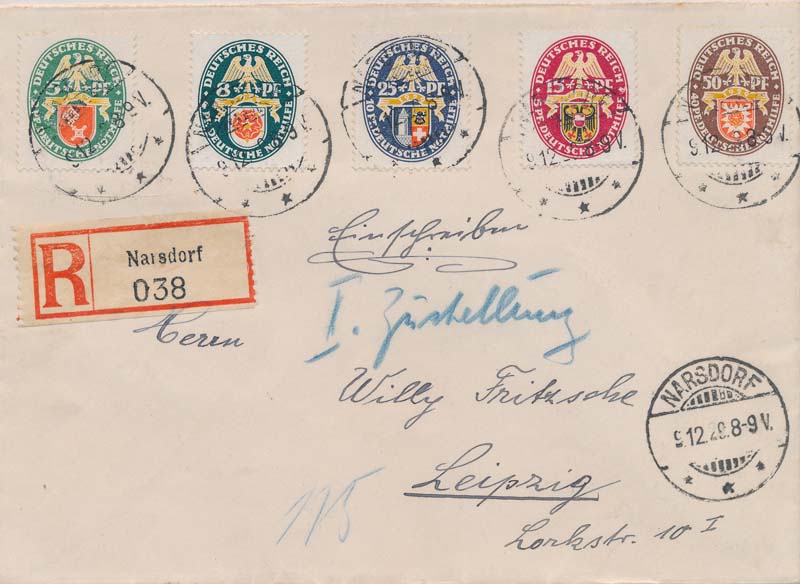 DEUTSCHES REICH
5 PF
DEUTSCHE NOTHILFE
DEUTSCHES REICH
8 PF
DEUTSCHE NOTHILFE
DEUTSCHES REICH
25 PF
10 PF DEUTSCHE NOTHILFE
DEUTSCHES REICH
15 PF
5 PF DEUTSCHE NOTHILFE
DEUTSCHES REICH
50 PF
40 PF DEUTSCHE NOTHILFE
R
Narsdorf
038
Einschreiben
I. Zustellung
Herrn
Willy Fritzsche
Leipzig
Lorkstr. 10 I
175
NARSDORF
9.12.29.8-9V.